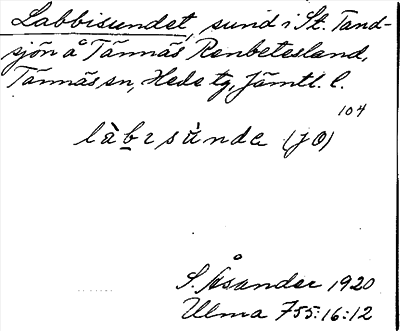 Labbisundet, sund i St. Tand-
sjön å Tännäs Renbetesland,
Tännäs sn, Hede tg, Jämtl. l.
104
làbɪsùndɐ (jO)
S. Åsander 1920
Ulma 755:16:12